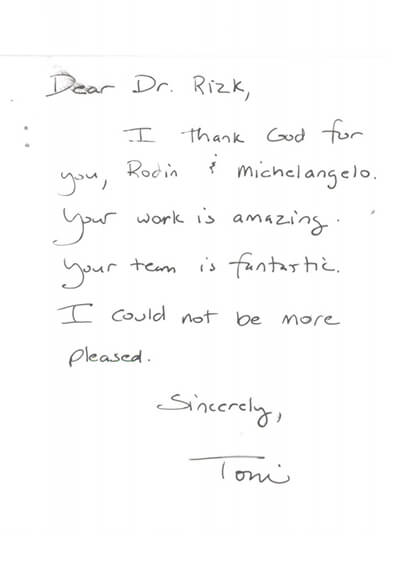 Dear Dr. Rizk,
I thank God for
you, Rodin & Michelangelo.
Your work is amazing.
Your team is fantastic.
I could not be more
pleased.
Sincerely,
Toni